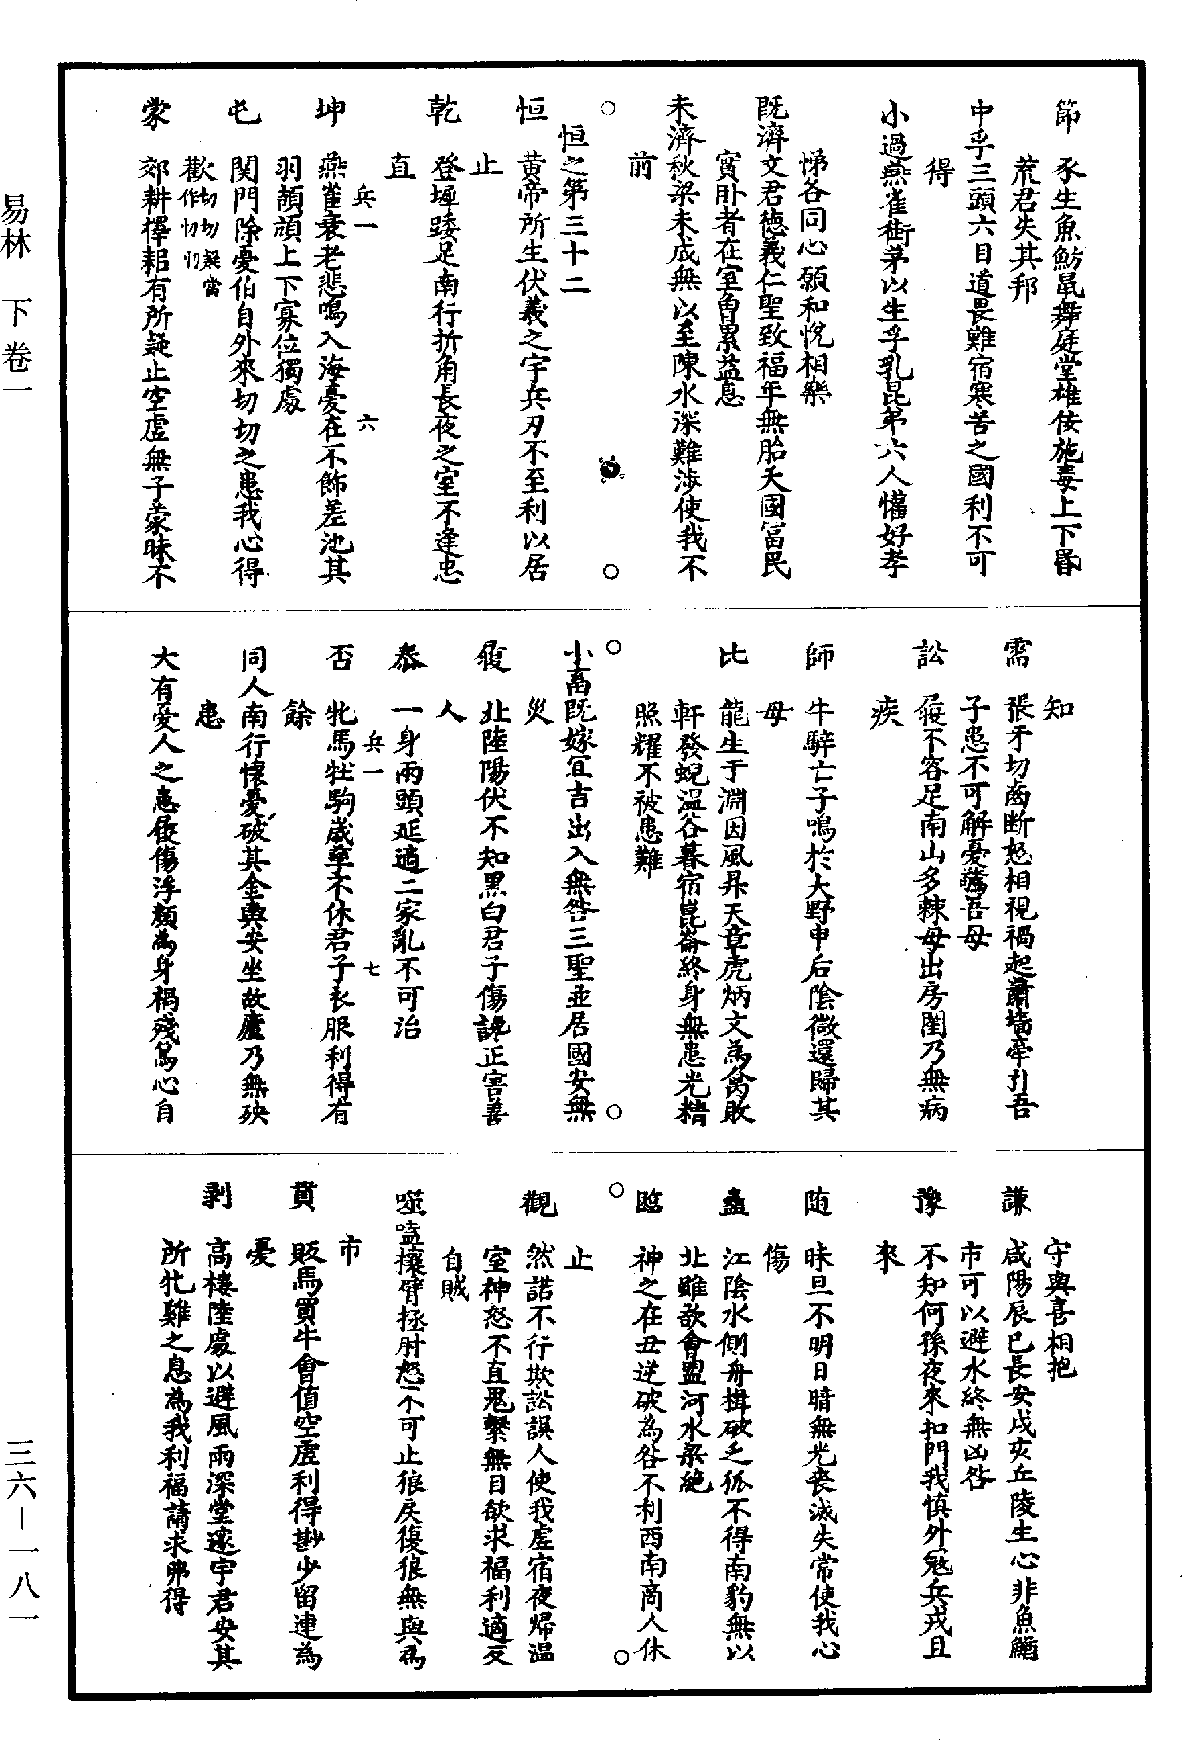 節　豕生魚魴鼠舞庭堂雄佞施毒上下昏
荒君失其邦
中孚三頭六目道畏難宿寒苦之國利不可
得
小過燕雀銜茅以生孚乳昆弟六人懽好孝
悌各同心願和悅相樂
既濟文君德義仁聖致福年無胎夭國富民
實卧者在室曾累益息
未濟秋梁未成無以至陳水深難涉使我不
前
恒之第三十二
恒　黃帝所生伏羲之宇兵刃不至利以居
止
乾　登墀踒足南行折角長夜之室不逢忠
直
兵一　六
坤　燕雀衰老悲鳴入海憂在不飾差池其
羽頡頏上下寡位獨處
屯　関門除憂伯自外來切切之患我心得
歡切切疑當作忉忉
蒙　郊耕擇耜有所疑止空虛無子蒙昧不
知
需　張矛切齒斷怒相視禍起蕭墻牽引吾
子患不可解憂驚吾母
訟　不容足南山多棘母出房閨乃無病
疾
師　牛騂亡子鳴於大野申后陰微還歸其
母
比　龍生于淵因風昇天章虎炳文為禽敗
軒發蜺溫谷暮宿崑崙終身無患光精
照耀不被患難
小畜既嫁宜吉出入無咎三聖並居國安無
災
履　北陸陽伏不知黑白君子傷讒正害善
人
泰　一身兩頭延適二家亂不可治
兵一　七
否　牝馬牡駒歲孳不休君子衣服利得有
餘
同人南行懷憂破其金輿安坐故廬乃無殃
患
大有愛人之患傷浮類為身禍殘篤心自
守與喜相抱
謙　咸陽辰巳長安戌亥丘陵生心非魚鰌
市可以避水終無凶咎
豫　不知何孫夜來扣門我慎外寇兵戎且
來
随　昧旦不明日暗無光喪滅失常使我心
傷
蠱　江陰水側舟揖破乏狐不得南豹無以
北雖欲會盟河水梁絶
臨　神之在丑逆破為咎不利西南商人休
止
觀　然諾不行欺訟誤人使我虛宿夜歸溫
室神怒不直鬼擊無目欲求福利適反
自賊
噬嗑攘臂拯肘怒不可止狼戾復狼無與為
市
賁　販馬買牛會值空虛利得尠少留連為
憂
剥　高樓陸處以避風雨深堂邃宇君安其
所牝雞之息為我利福請求弗得
易林　下　卷一
三六－一八一